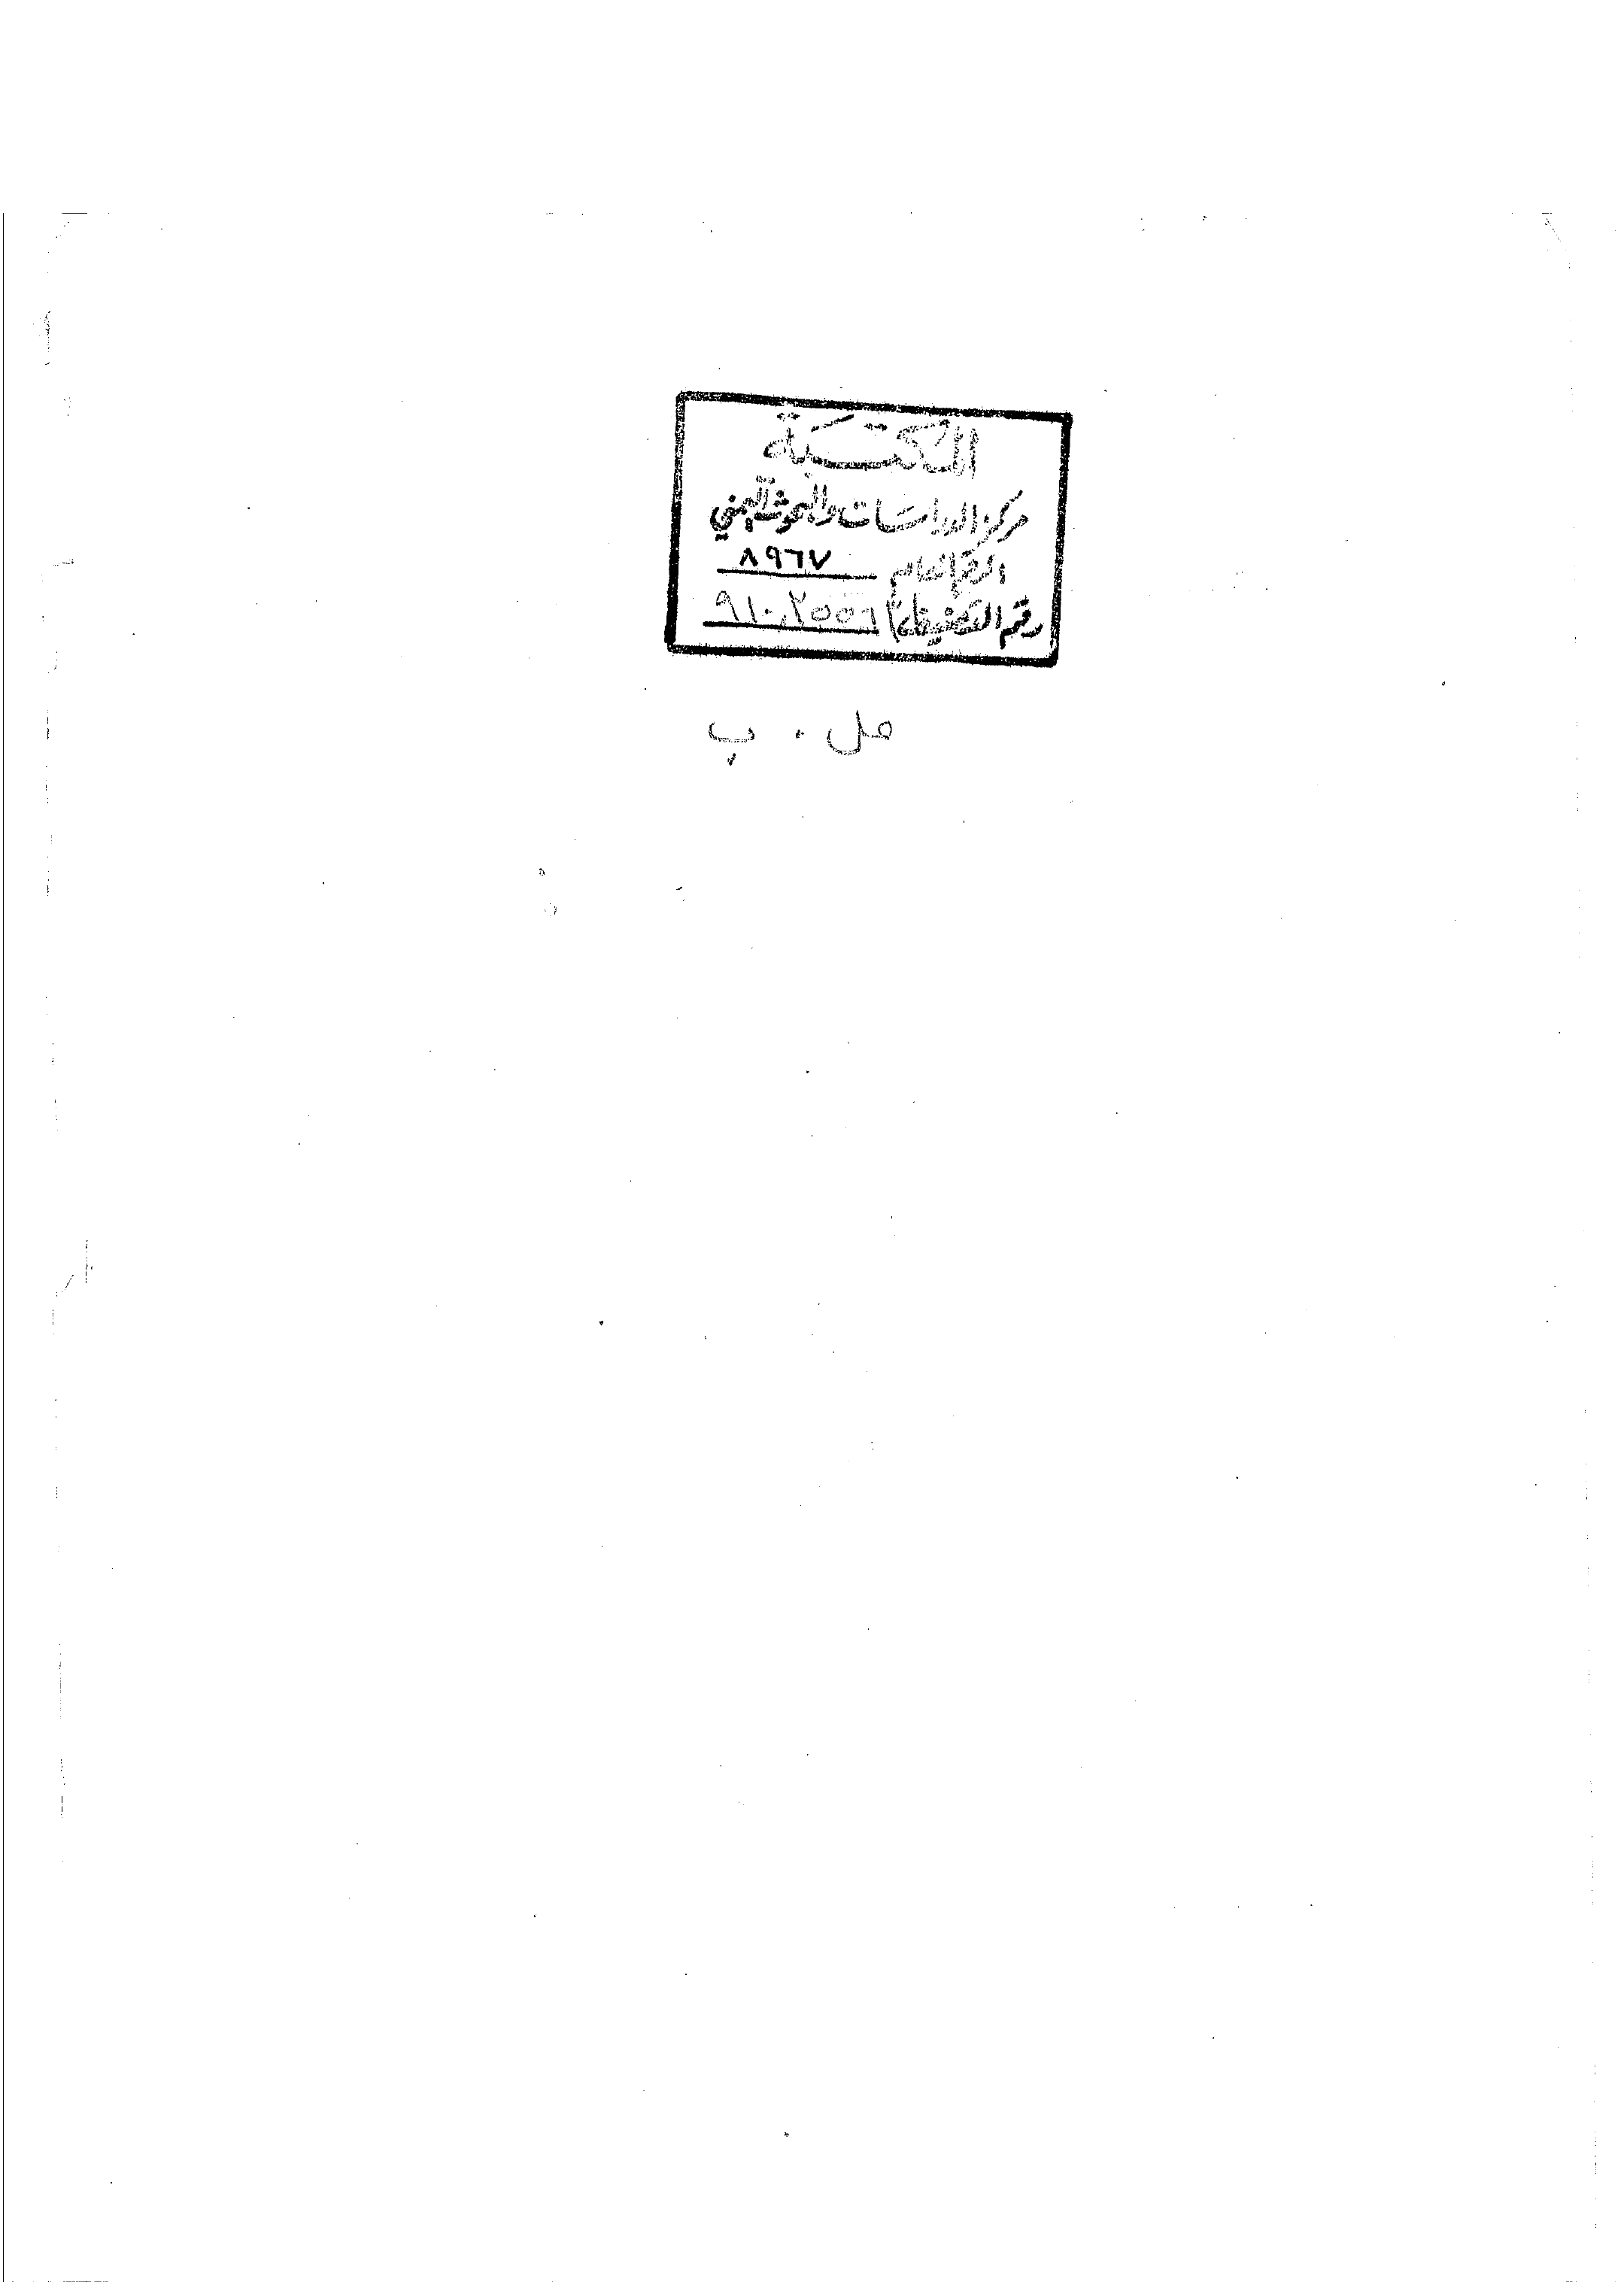 المكتبة
مركز الدراسات والبحوث اليمني
الرقم العام ٨٩٦٧
رقم التصنيف
ب .